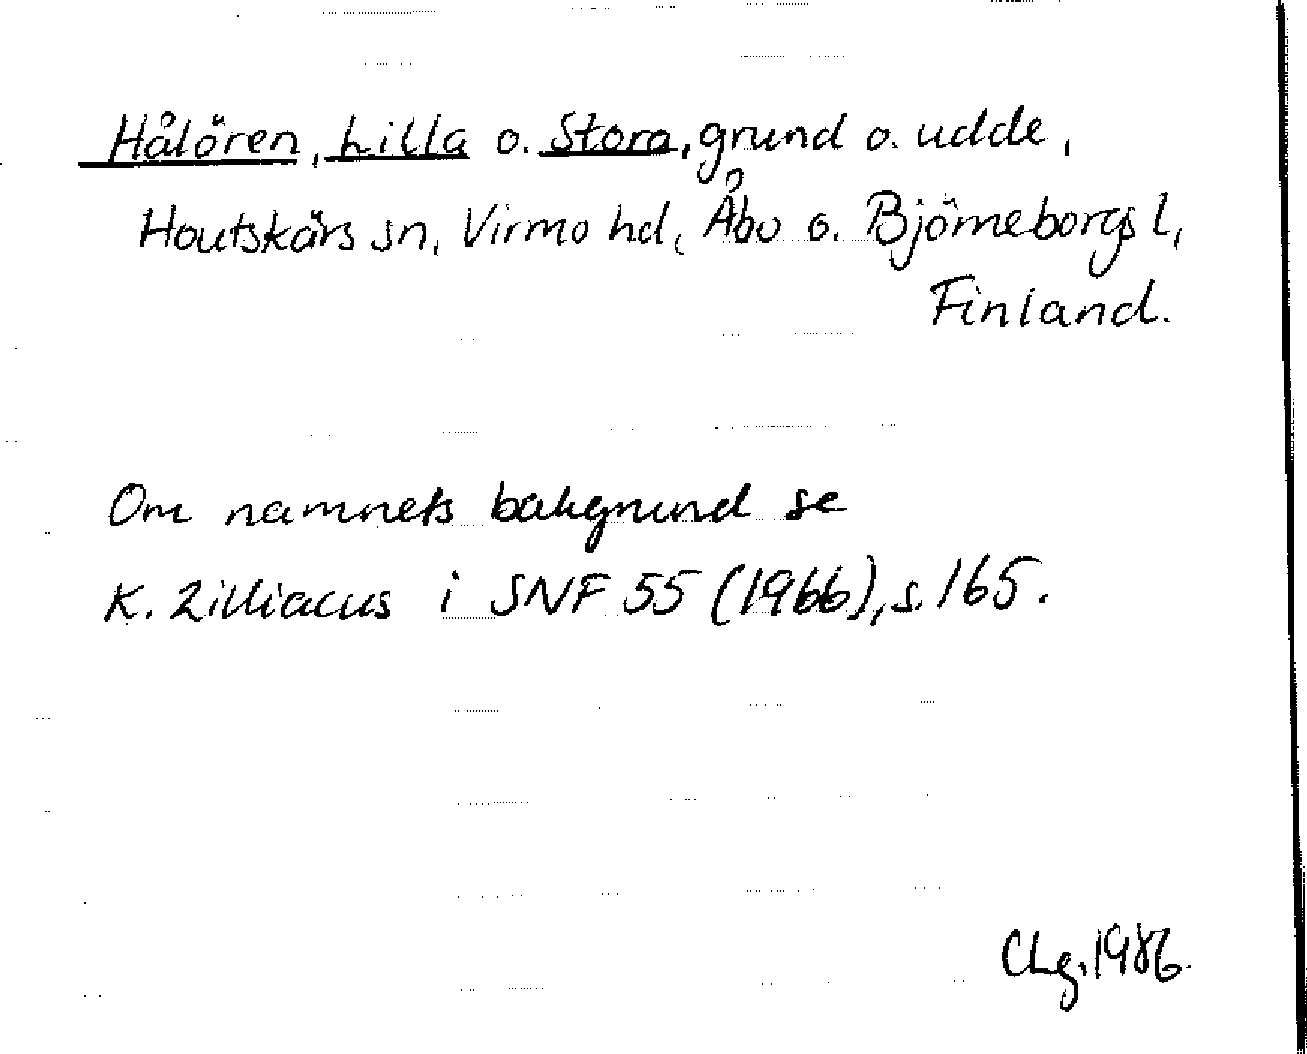 Hålören, Lilla o. Stora, grund o. udde,
Houtskärs sn, Virmo hd, Åbo o. Björneborgs l,
Finland.
Om namnets bakgrund se
K. Zilliacus i SNF 55 (1966), s. 165.
CLg. 1986.